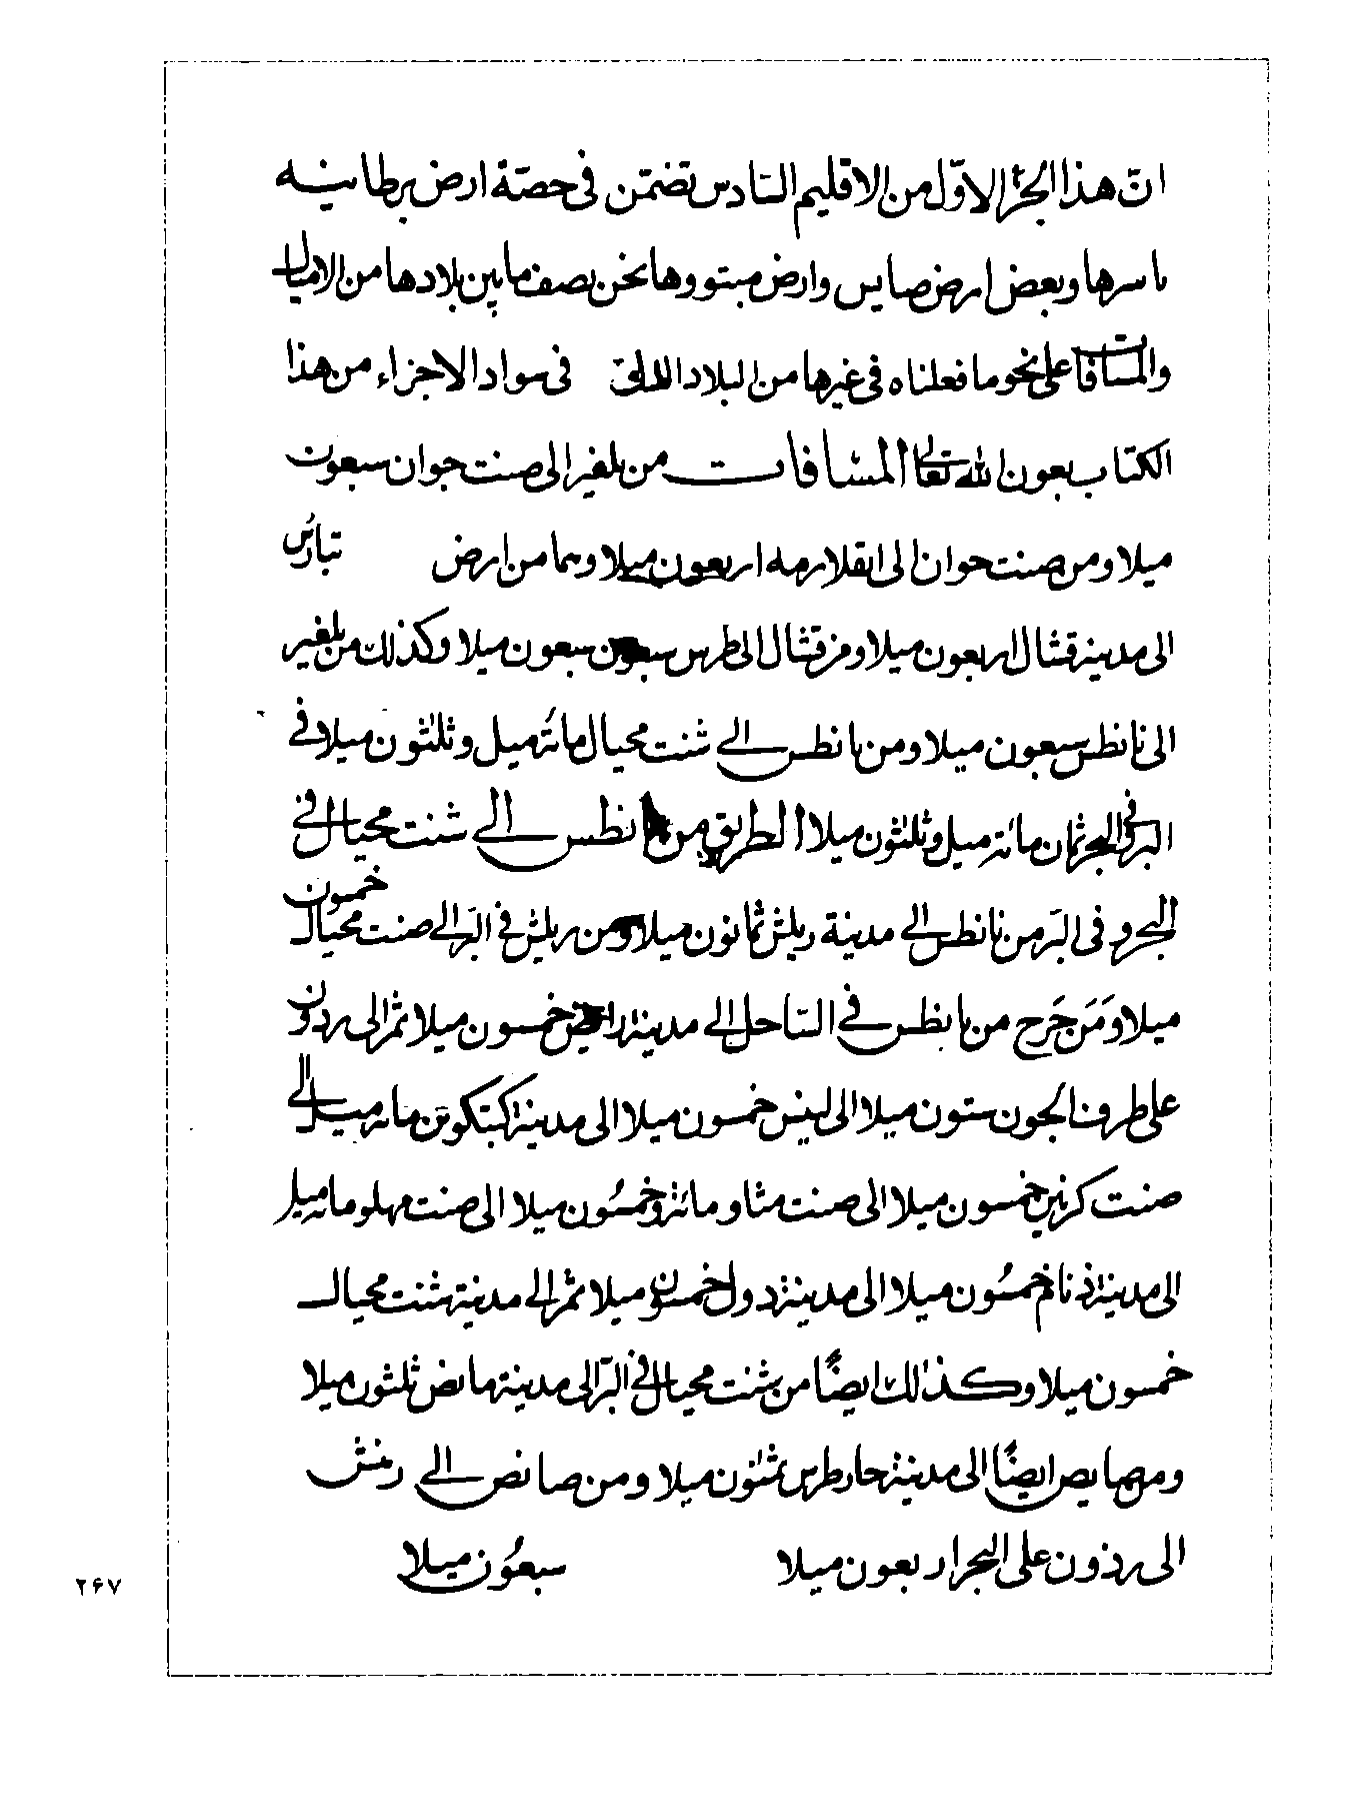 انّ هذا الجزء الاوّل من الاقليم السادس تضمّن فى حصّة ارض برطانيه
باسرها وبعض ارض صايس وارض مبتوو وها نحن نصف ما بين بلادها من الاميال
والمسافات على نحو ما فعلناه فى غيرها من البلاد فى سواد الاجزاء من هذا
الكتاب بعون الله تعالى المسافات من بلغير الى صنت جوان سبعون
ميلا ومن صنت جوان الى انقلازمه اربعون ميلا وهما من ارض
الى مدينة قشال اربعون ميلا ومن قشال الى طرس سبعون ميلا وكذلك من بلغير
الى نانطس سبعون ميلا ومن نانطس الى شنت محيال مائة ميل وثلثون ميلا فى
البر وفى البحر ثمان مائة ميل وثلثون ميلا الطريق من نانطس الى شنت محيال فى
البحر وفى البَر من نانطس الى مدينة ريلش ثمانون ميلا ومن ريلش فى البَر الى صنت محيال خمسون
ميلا وَمَن جَرح من نانطس فى الساحل الى مدينة خمسون ميلا ثم الى ردون
على طرف الجون ستون ميلا الى لينس خمسون ميلا الى مدينة مائة ميل الى
صنت كرنين خمسون ميلا الى صنت مثاو مائة وخمسُون ميلا الى صنت مهلو مائة ميل
الى مدينة ذنام خمسُون ميلا الى مدينة دول خمسون ميلا ثم الى مدينة شنت محيال
خمسون ميلا وكذلك ايضًا من شنت محيال فى البرّ الى مدينة مانص ثلثون ميلا
ايضًا الى مدينة ميلا ومن صانص الى رنش
الى رذون على البحر اربعون ميلا سبعُون ميلا
۲۶۷